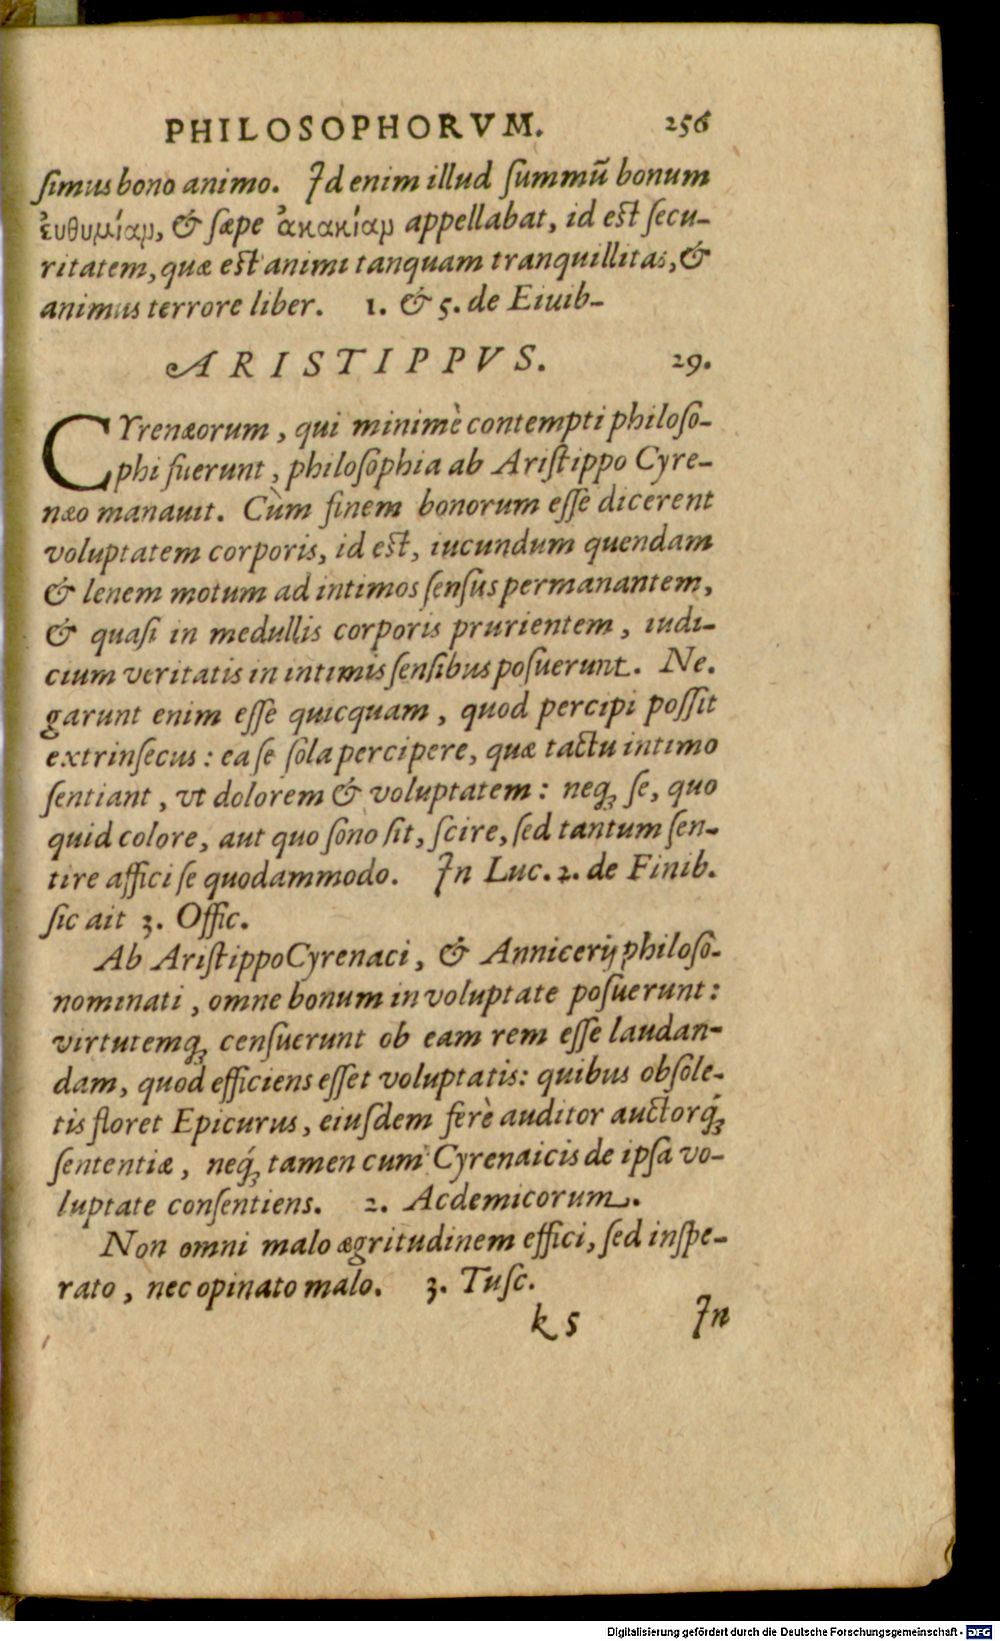 PHILOSOPHORVM. 256
ſimus bono animo. Id enim illud ſummū bonum
ἐυθυμίαμ, & ſæpe ἀκακίαμ appellabat, id eſt ſecu-
ritatem, quæ eſt animi tanquam tranquillitas, &
animus terrore liber. 1. & 5. de Eiuib-
ARISTIPPVS. 29.
CYrenæorum, qui minimè contempti philoſo-
phi fuerunt, philoſophia ab Ariſtippo Cyre-
næo manauit. Cùm finem bonorum eſſe dicerent
voluptatem corporis, id eſt, iucundum quendam
& lenem motum ad intimos ſenſus permanantem,
& quaſi in medullis corporis prurientem, iudi-
cium veritatis in intimis ſenſibus poſuerunt. Ne.
garunt enim eſſe quicquam, quod percipi poſſit
extrinſecus: ea ſe ſola percipere, quæ tactu intimo
ſentiant, vt dolorem & voluptatem: neq; ſe, quo
quid colore, aut quo ſono ſit, ſcire, ſed tantum ſen-
tire affici ſe quodammodo. In Luc. 2. de Finib.
ſic ait 3. Offic.
Ab Ariſtippo Cyrenaci, & Annicerij philoſo-
nominati, omne bonum in voluptate poſuerunt:
virtutemq; cenſuerunt ob eam rem eſſe laudan-
dam, quod efficiens eſſet voluptatis: quibus obſole-
tis floret Epicurus, eiuſdem ferè auditor auctorq́;
ſententiæ, neq́; tamen cum Cyrenaicis de ipſa vo-
luptate conſentiens. 2. Acdemicorum.
Non omni malo ægritudinem effici, ſed inſpe-
rato, nec opinato malo. 3. Tuſc.
k 5 In
Digitalisierung gefördert durch die Deutsche Forschungsgemeinschaft - DFG